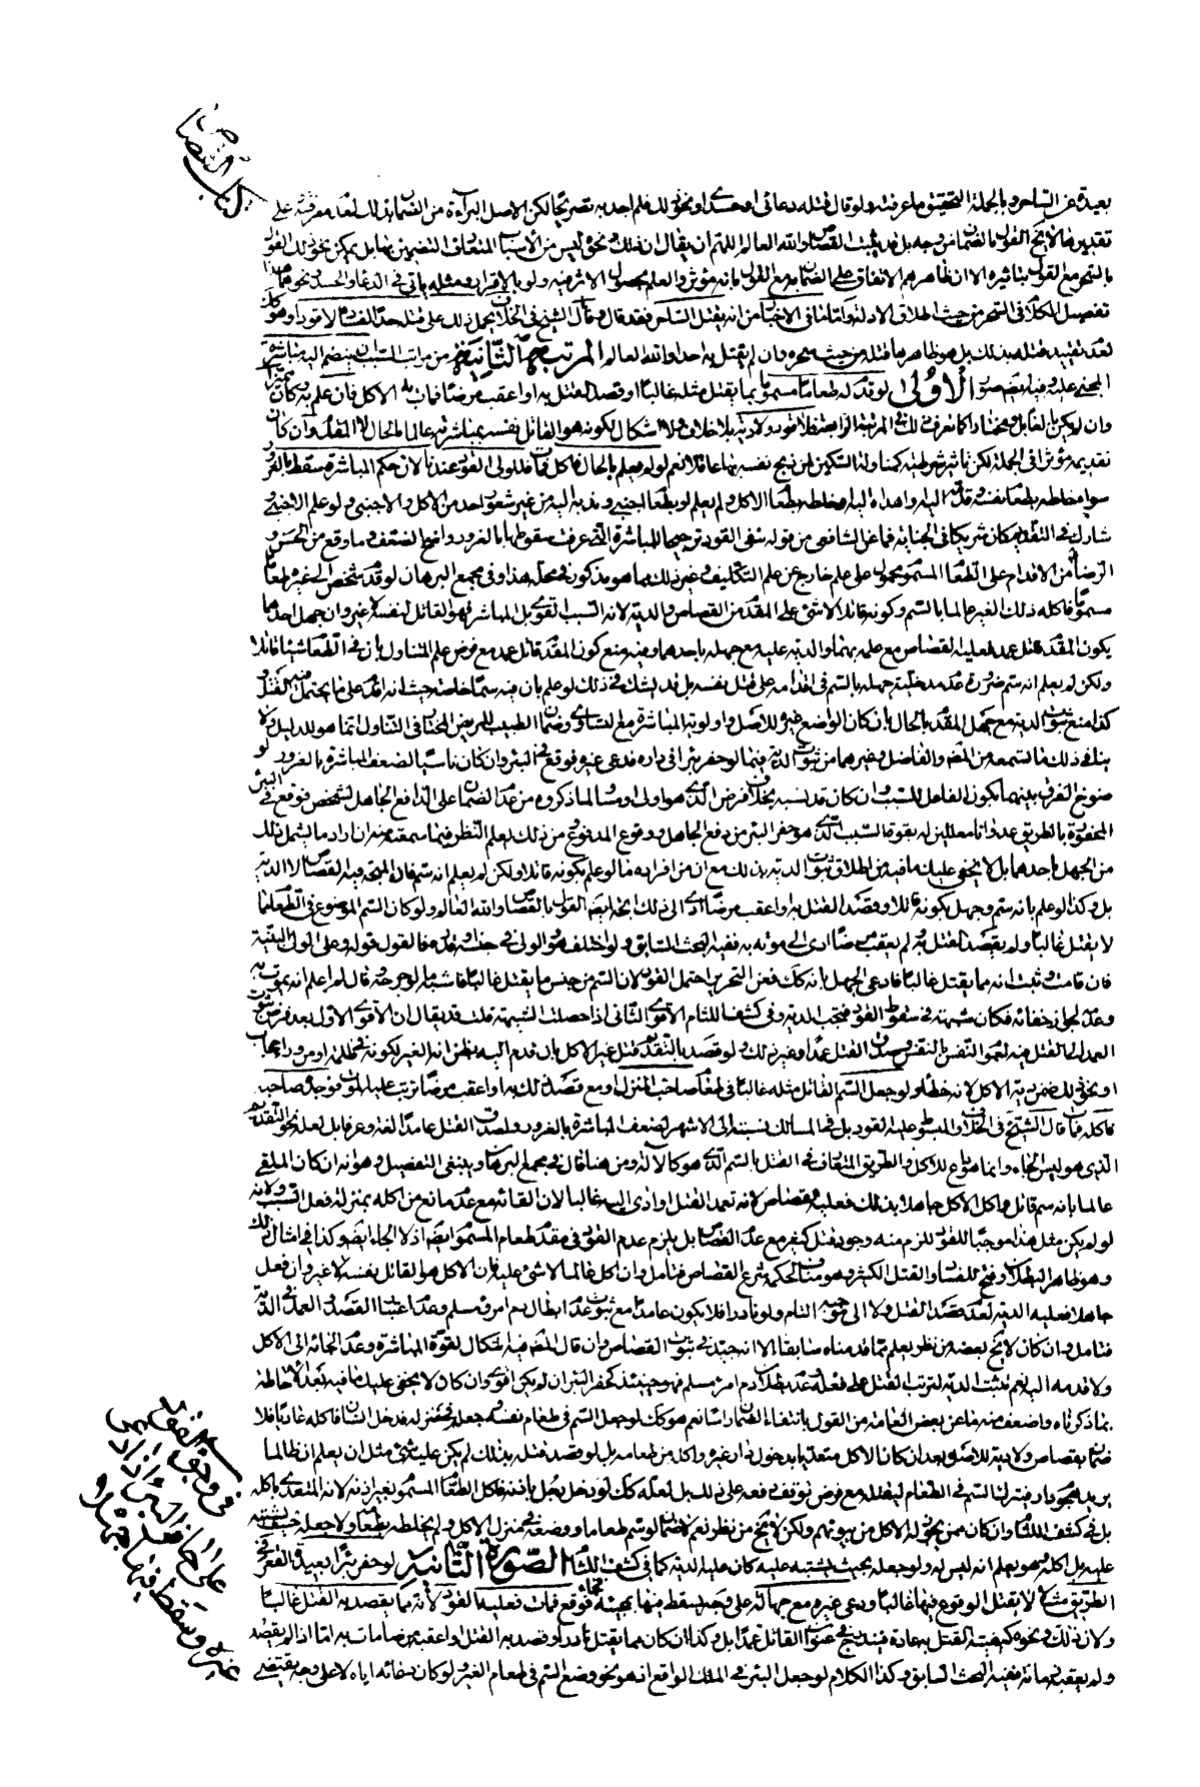 كتاب القصاص
بعيدة عن الساحر وبالجملة التحقيق ما عرفته ولو قال قتلته بدعائي او حسدي او نحو ذلك فلم اجد به تصريحا لكن الاصل البراءة من الضمان بذلك لعدم معرفته على
تقدير فالأتجه القول بالضمان من وجه بل قد يثبت القصاص والله العالم اللهم ان يقال ان ذلك ونحوه ليس من الأسباب المتعارف التضمين بها بل يمكن نحو ذلك القول
بالسحر مع القول بتأثيره الا ان ظاهرهم الاتفاق على الضمان به مع القول بانه مؤثر والعلم بحصول الاثر منه ولو بالاقرار ومثله يأتي في الدعاء والحسد ونحوهما هذا
تفصيل الكلام في السحر من حيث اطلاق الادلة واما ما في الاخبار من انه يقتل الساحر فقد قال قال الشيخ في الخلاف يحمل ذلك على قتله حدا لفساده لا قودا وهو كذلك
لعدم تقييد قتله بذلك بل هو ظاهر بها قتله من حيث سحره وان لم يقتل به احدا والله العالم المرتبة الثانية من مراتب التسبيب ان ينضم اليه مباشرة
المجني عليه وفيه ايضا صور الاولى لو قدم له طعاما مسموما بما يقتل مثله غالبا او قصد القتل به او اعقب مرضا فمات به الاكل فان علم به وكان مميزا
وان لم يكن بالغا فلا قود ولا دية بلا خلاف ولا اشكال لكونه هو القاتل نفسه بمباشرته عالما بالحال لا المقدم وان كان
تقديمه مؤثرا في الجملة لكن تأثير شرطية كمناولة السكين لمن ذبح نفسه بها عاقلا نعم لو لم يعلم بالحال فأكل فمات فللولي القود عندنا لان حكم المباشرة سقط بالغرور
سواء خلطه بطعام نفسه وقدمه اليه او اهداه اليه او خلطه بطعام الآكل ولم يعلم او بطعام اجنبي وندبه اليه من غير شعور احد من الآكل والاجنبي ولو علم الاجنبي
شارك في التقديم كان شريكا في الجناية فما عن الشافعي من قوله بنفي القود ترجيحا للمباشرة التي عرفت سقوطها بالغرور واضح الضعف وما وقع من الحسن و
الرضا من الاقدام على الطعام المسموم محمول على علم خارج عن علم التكليف وغير ذلك مما هو مذكور في محله هذا وفي مجمع البرهان لو قدم شخص الى غيره طعاما
مسموما فأكله ذلك الغير عالما بالسم وكونه قاتلا لا شيء على المقدم من القصاص والدية لانه السبب القوي بل المباشر فهو القاتل لنفسه لا غير وان جهل احدهما
يكون المقدم قاتل عمد فعليه القصاص مع علمه بهما والدية عليه مع جهله باحدهما وفيه منع كون المقدم قاتل عمد مع فرض علم المتناول بان في الطعام شيئا قاتلا
ولكن لم يعلم انه سم ضرورة عدم مدخلية جهله بالسم في اقدامه على قتل نفسه بل قد يشك في ذلك لو علم بان فيه سما خاصة حيث انه اقدم على ما يحتمل فيه القتل و
كذا منع ثبوت الدية مع جهل المقدم بالحال بان كان الواضع غيره للاصل واولوية المباشرة مع التساوي وضمان الطبيب للمريض المختار في التناول انما هو للدليل ولا
ينافي ذلك ما تسمعه من المصنف والفاضل وغيرهما من ثبوت الدية فيما لو حفر بئرا في داره فدعى غيره فوقع في البئر وان كان ناسيا لضعف المباشرة بالغرور لو
ضوح الفرق بينهما بكون الفاعل للسبب وان كان قد نسيه بخلاف فرض الذي هو اولى او مساو لما ذكروه من عدم الضمان على الدافع الجاهل لشخص فوقع في البئر
المحفورة بالطريق عدوانا معللين له بقوة السبب الذي هو حفر البئر من دفع الجاهل ووقوع المدفوع من ذلك يعلم النظر فيما سمعته منه ان اراد ما يشمل ذلك
من الجهل باحدهما بل لا يخفى عليك ما فيه من اطلاق ثبوت الدية بذلك مع ان من افراده ما لو علم بكونه قاتلا ولكن لم يعلم انه سم فان المتجه فيه القصاص لا الدية
بل وكذا لو علم بانه سم وجهل بكونه قاتلا وقصد القتل به او اعقب مرضا ادى الى ذلك يتجه ايضا القول بالقصاص والله العالم ولو كان السم الموضوع في الطعام مما
لا يقتل غالبا ولم يقصد القتل به ولم يعقب مرضا ادى الى موته به ففيه البحث السابق ولو اختلف هو والولي في جنسه او قدره فالقول قوله وعلى الولي البينة
فان قامت وثبت انه مما يقتل غالبا فادعى الجهل بانه كذلك فعن التحرير احتمل القود لان السم من جنس ما يقتل غالبا فاشبه ما لو جرحه وقال لم اعلم انه يموت به
وعدمه لجواز خفائه فكان شبهة في سقوط القود فتجب الدية وفي كشف اللثام الاقوى الثاني اذا حصلت الشبهة قلت قد يقال ان الاقوى الاول بعد فرض ثبوت
العمد الى القتل فيه لعموم النفس بالنفس وصدق القتل عمدا وغير ذلك ولو قصد بالتقديم قتل غير الآكل بان قدم اليه بظن انه الغير لكونه في ظلمة او من وراء حجاب
او نحو ذلك ضمن دية الآكل لانه خطأ ولو جعل السم القاتل مثله غالبا في طعام صاحب المنزل او مع قصد ذلك به او اعقب مرضا ترتب عليه الموت فوجده صاحبه
فأكله فمات قال الشيخ في الخلاف والمبسوط عليه القود بل في المسالك نسبته الى الاشهر لضعف المباشرة بالغرور ولصدق القتل عامدا لغة وعرفا بل لعله نحو التقديم
الذي هو ليس الجاء وانما هو داع للاكل والطريق المتعارف في القتل بالسم الذي هو كالآلة ومن هنا قال في مجمع البرهان وينبغي التفصيل وهو انه ان كان الملقي
عالما بانه سم قاتل وأكل الآكل جاهلا بذلك فعليه القصاص لانه تعمد القتل او ادى اليه غالبا لان القائه مع عدم مانع من اكله بمنزلة فعل السبب ولانه
لو لم يكن مثل هذا موجبا للقود للزم منه وجود قتل كثير مع عدم القصاص بل يلزم عدم القود في مقدم طعام المسموم ايضا اذ لا الجاء ايضا وكذا في امثال ذلك
وهو ظاهر البطلان وفتح للفساد والقتل الكثير وهو مناف لحكمة شرع القصاص فتأمل وان اكل عالما لا شيء عليه فان الآكل هو القاتل نفسه لا غير وان فعل
جاهلا فعليه الدية لعدم قصد القتل ولا الى موجبه التام ولو نادرا فلا يكون عامدا مع ثبوت عدم ابطال دم امرئ مسلم وعدم اعتبار القصد والعمد في الدية
فتأمل وان كان لا يخ بعضه من نظر يعلم مما قدمناه سابقا الا انه جيد في ثبوت القصاص وان قال المصنف فيه اشكال لقوة المباشرة وعدم الجائه الى الاكل
ولا قدمه اليه نعم تثبت الدية لترتب القتل على فعله وعدم بطلان دم امرئ مسلم فهو حينئذ كحفر البئر ان لم يكن اقوى وان كان لا يخفى عليك ما فيه بعد الاحاطة
بما ذكرناه واضعف منه ما عن بعض العامة من القول بانتفاء الضمان رأسا نعم هو كذلك لو جعل السم في طعام نفسه وجعله في منزله فدخل انسان فأكله عاديا فلا
ضمان بقصاص ولا دية للاصل وبعد ان كان الآكل متعديا بدخول دار غيره واكله من طعامه بل لو قصد قتله بذلك لم يكن عليه شيء مثل ان يعلم ان ظالما
يريد هجوم داره فترك السم في الطعام ليقتله مع فرض توقف دفعه على ذلك بل لعله كذلك لو دخل رجل باذنه فأكل الطعام المسموم بغير اذنه لانه المتعدي بأكله
بل في كشف اللثام وان كان ممن يجوز له الاكل من بيوتهم ولكن لا يخ من نظر نعم لا ضمان لو سم طعاما ووضعه في منزل الآكل ولم يخلطه بطعامه ولا جعله حيث يشتبه
عليه بل أكله وهو يعلم انه ليس له ولو جعله بحيث يشتبه عليه كان عليه الدية كما في كشف اللثام الصورة الثانية لو حفر بئرا بعيدة القعر في
الطريق مثلا لا يقتل الوقوع فيها غالبا ودعى غيره مع جهالته على وجه يسقط فيها بمجيئه فجاء فوقع فمات فعليه القود لأنه مما يقصد به القتل غالبا
ولان ذلك ونحوه كيفية القتل به عادة فيندرج في عنوان القاتل عمدا بل وكذا ان كان مما يقتل نادرا وقصد به القتل او اعقبه مرضا مات به اما اذا لم يقصد
ولم يعقبه فمات ففيه البحث السابق وكذا الكلام لو جعل البئر في الملك الواقع انه هو نحو وضع السم في طعام الغير لو كان دعائه اياه لا على وجه يقتضي
في وجوب القود
على الحافر البئر اذا دعى
غيره وسقط فيها جهلا